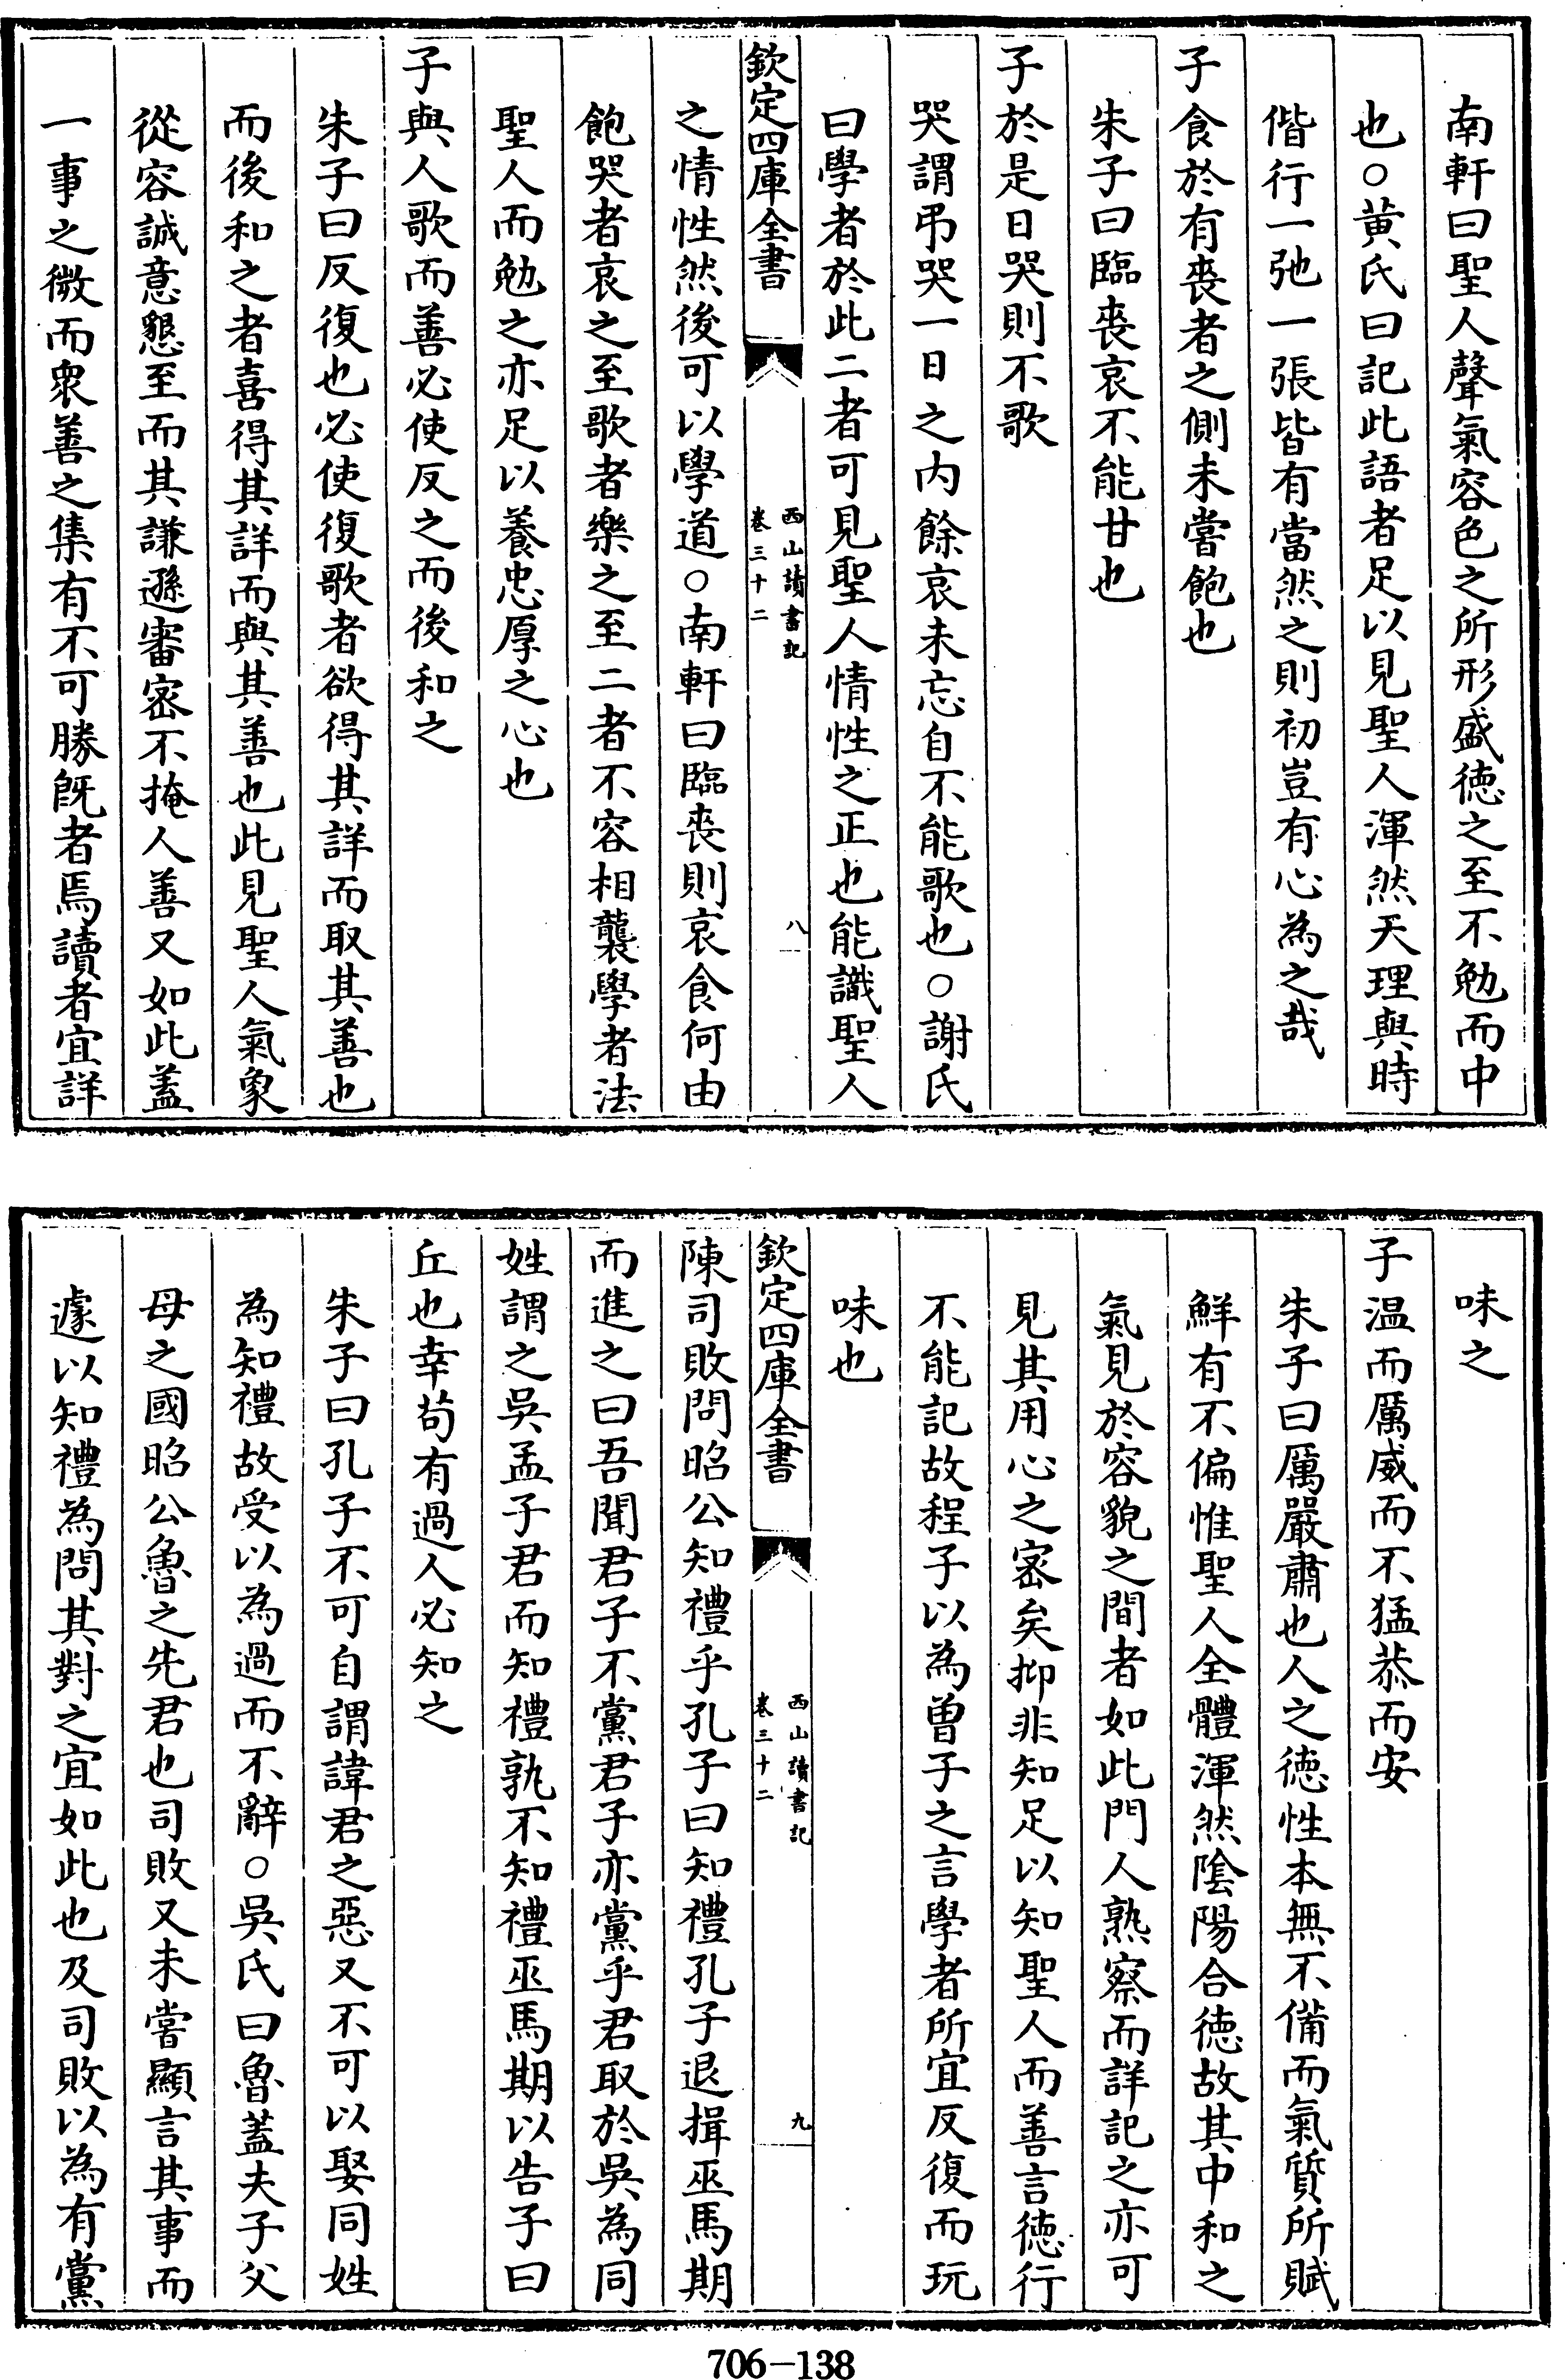 南軒曰聖人聲氣容色之所形盛徳之至不勉而中
也○黄氏曰記此語者足以見聖人渾然天理與時
偕行一弛一張皆有當然之則初豈有心為之哉
子食於有喪者之側未嘗飽也
朱子曰臨喪哀不能甘也
子於是日哭則不歌
哭謂弔哭一日之内餘哀未忘自不能歌也○謝氏
曰學者於此二者可見聖人情性之正也能識聖人
欽定四庫全書
西山讀書記
卷三十二
八
之情性然後可以學道○南軒曰臨喪則哀食何由
飽哭者哀之至歌者樂之至二者不容相襲學者法
聖人而勉之亦足以養忠厚之心也
子與人歌而善必使反之而後和之
朱子曰反復也必使復歌者欲得其詳而取其善也
而後和之者喜得其詳而與其善也此見聖人氣象
從容誠意懇至而其謙遜審宻不掩人善又如此蓋
一事之微而衆善之集有不可勝旣者焉讀者宜詳
味之
子温而厲威而不猛恭而安
朱子曰厲嚴肅也人之徳性本無不備而氣質所賦
鮮有不偏惟聖人全體渾然隂陽合徳故其中和之
氣見於容貌之間者如此門人熟察而詳記之亦可
見其用心之宻矣抑非知足以知聖人而善言徳行
不能記故程子以為曽子之言學者所宜反復而玩
味也
欽定四庫全書
西山讀書記
卷三十二
九
陳司敗問昭公知禮乎孔子曰知禮孔子退揖巫馬期
而進之曰吾聞君子不黨君子亦黨乎君取於吳為同
姓謂之吳孟子君而知禮孰不知禮巫馬期以告子曰
丘也幸苟有過人必知之
朱子曰孔子不可自謂諱君之惡又不可以娶同姓
為知禮故受以為過而不辭○吳氏曰魯蓋夫子父
母之國昭公魯之先君也司敗又未嘗顯言其事而
遽以知禮為問其對之宜如此也及司敗以為有黨
706-138